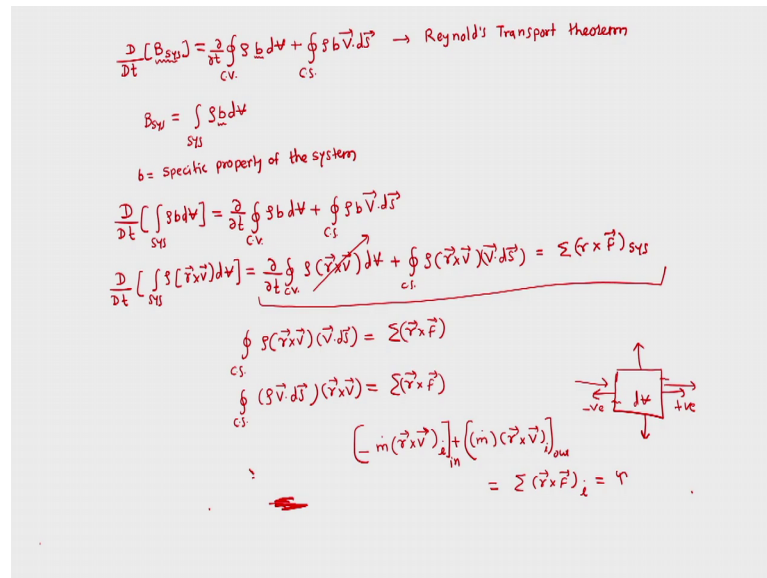 D/Dt [B_sys] = ∂/∂t ∮_C.V. ρ b dV̶ + ∮_C.S. ρ b V⃗·dS⃗ → Reynold's Transport theorem
B_sys = ∫_sys ρ b dV̶
b = Specific property of the system
D/Dt [∫_sys ρ b dV̶] = ∂/∂t ∮_C.V. ρ b dV̶ + ∮_C.S ρ b V⃗·dS⃗
D/Dt [∫_sys ρ (r⃗×v⃗) dV̶] = ∂/∂t ∮_C.V. ρ (r⃗×v⃗) dV̶ + ∮_C.S. ρ (r⃗×v⃗)(V⃗·dS⃗) = Σ(r×F⃗)_sys
∮_C.S. ρ(r⃗×v⃗)(V⃗·dS⃗) = Σ(r⃗×F⃗)
∮_C.S. (ρV⃗·dS⃗)(r⃗×v⃗) = Σ(r⃗×F⃗)
-ve dV̶ +ve
[-ṁ(r⃗×v⃗)_i]_in + [(ṁ)(r⃗×v⃗)_i]_out
= Σ(r⃗×F⃗)_i = τ